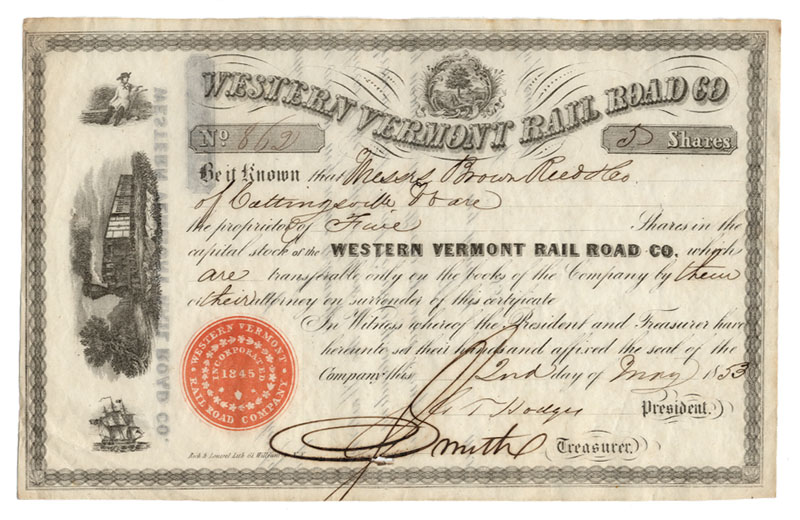 WESTERN VERMONT RAIL ROAD CO
No 862
5 Shares
Be it Known that Messrs Brown Reed & Co
of Cuttingsville Vt are
the proprietors of Five Shares in the
capital stock of the WESTERN VERMONT RAIL ROAD CO. which
are transferable only on the books of the Company by them
or their attorney on surrender of this certificate
In Witness whereof the President and Treasurer have
hereunto set their hands and affixed the seal of the
Company this 2nd day of May 1853
T Hodges President.
Smith Treasurer.
WESTERN VERMONT RAIL ROAD COMPANY
INCORPORATED
1845
WESTERN VERMONT RAIL ROAD CO.
Lith